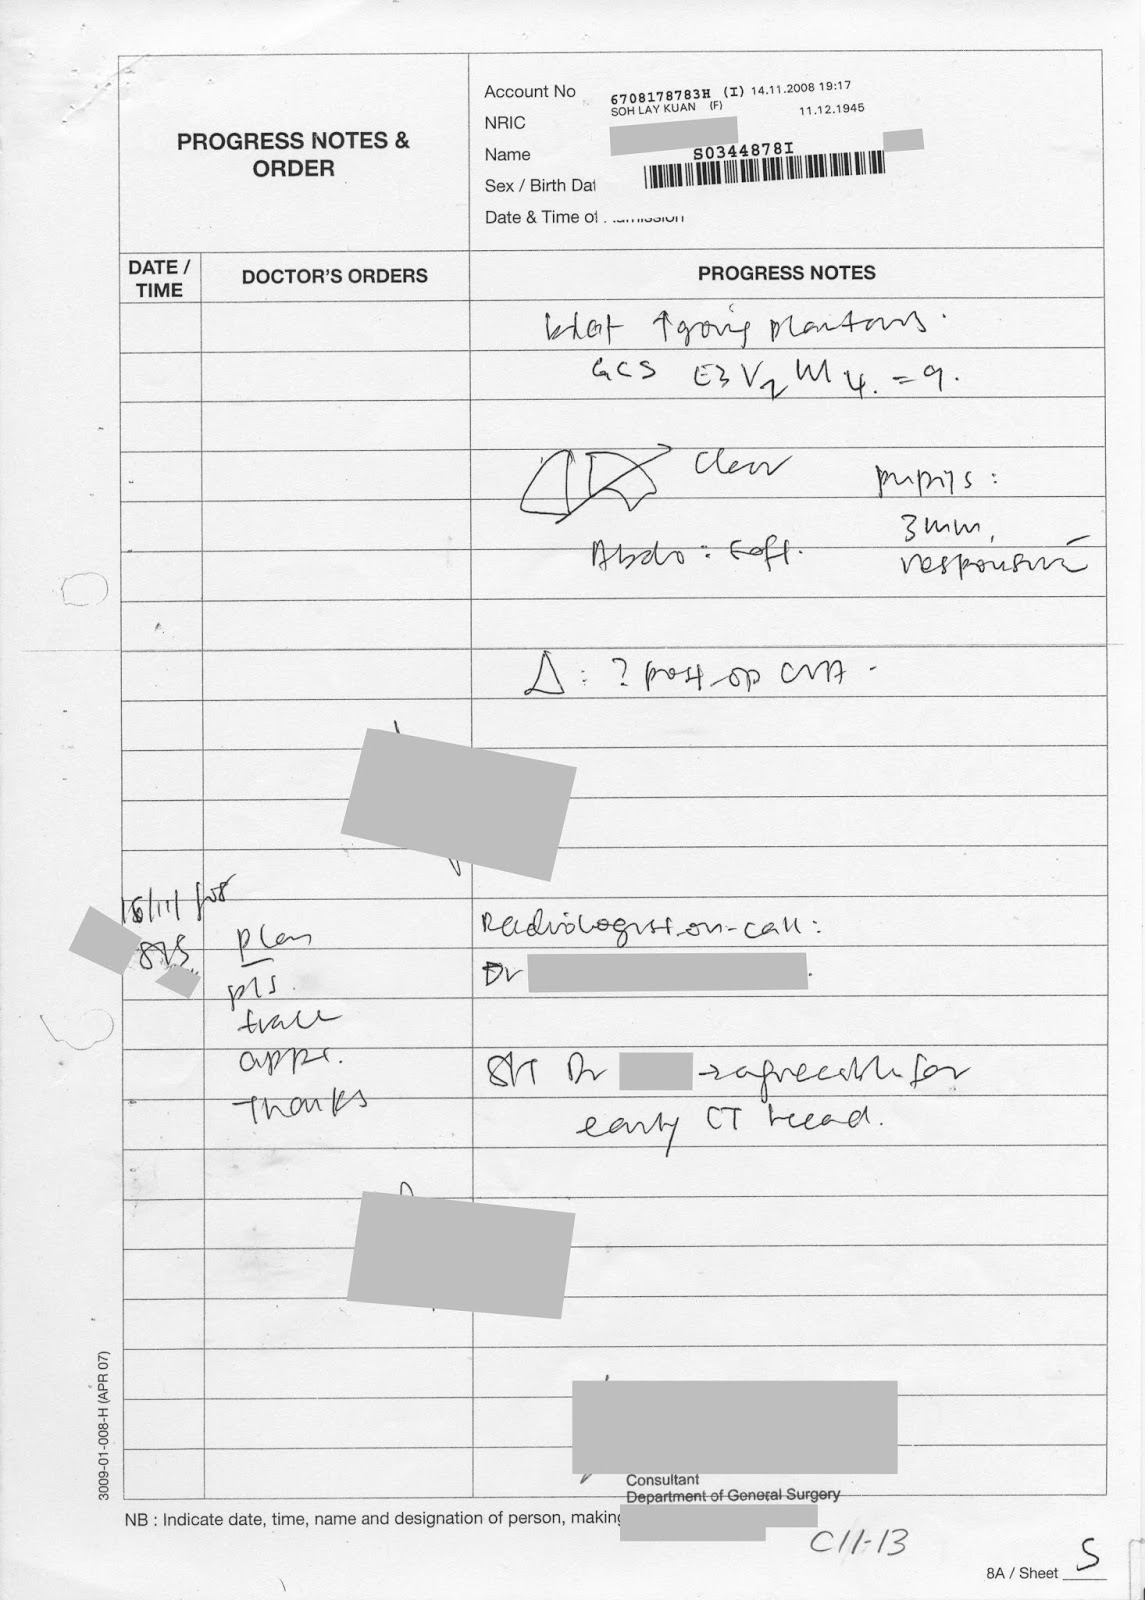 PROGRESS NOTES &
ORDER
Account No
6708178783H (I) 14.11.2008 19:17
SOH LAY KUAN (F) 11.12.1945
NRIC
Name
S0344878I
Sex / Birth Dat
Date & Time of
DATE /
TIME
DOCTOR'S ORDERS
PROGRESS NOTES
↑going plantars.
GCS E3 V2 M4. = 9.
clear
pupils:
3mm,
Abdo: soft.
responsive
Δ: ? post-op CVA.
Radiologist on-call:
plan
Dr
pls
trace
appt.
S/T Dr → agreeable for
Thanks
early CT head.
Consultant
Department of General Surgery
3009-01-008-H (APR 07)
NB : Indicate date, time, name and designation of person, making
C11-13
8A / Sheet 5